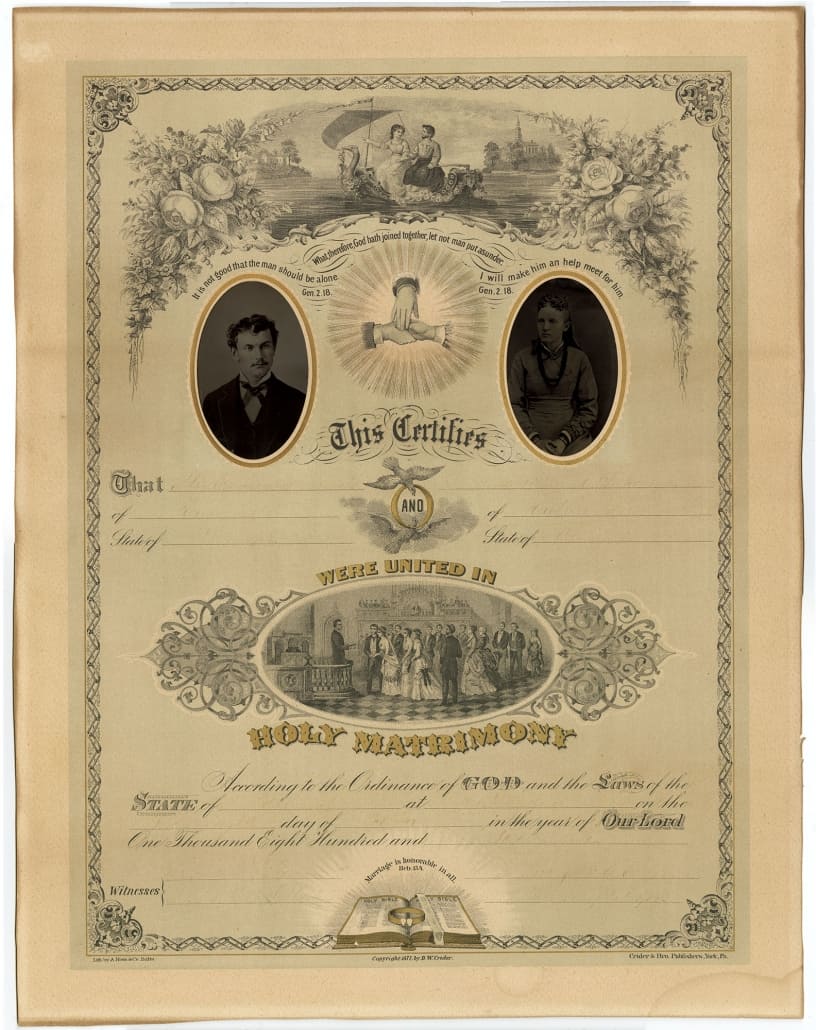 What therefore God hath joined together, let not man put asunder.
It is not good that the man should be alone.
Gen. 2. 18.
I will make him an help meet for him.
Gen. 2. 18.
This Certifies
That
AND
of
of
State of
State of
WERE UNITED IN
HOLY MATRIMONY
According to the Ordinance of GOD and the Laws of the
STATE of at on the
day of in the year of Our Lord
One Thousand Eight Hundred and
Marriage is honorable in all.
Heb. 13.4.
Witnesses
HOLY BIBLE
Y BIBLE
Lith. by A. Hoen & Co. Balto.
Copyright 1877, by D. W. Crider.
Crider & Bro. Publishers, York, Pa.